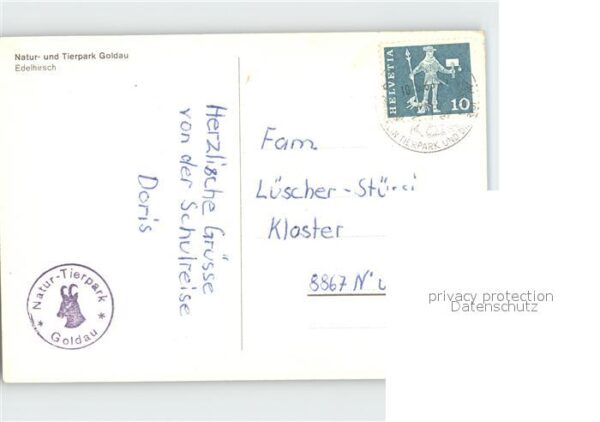 Natur- und Tierpark Goldau
Edelhirsch
Herzlische Grüsse
von der Schulreise
Doris
Natur-Tierpark
* Goldau *
HELVETIA
10
TIERPARK UND
Fam
Lüscher-
Kloster
8867 N'u
privacy protection
Datenschutz